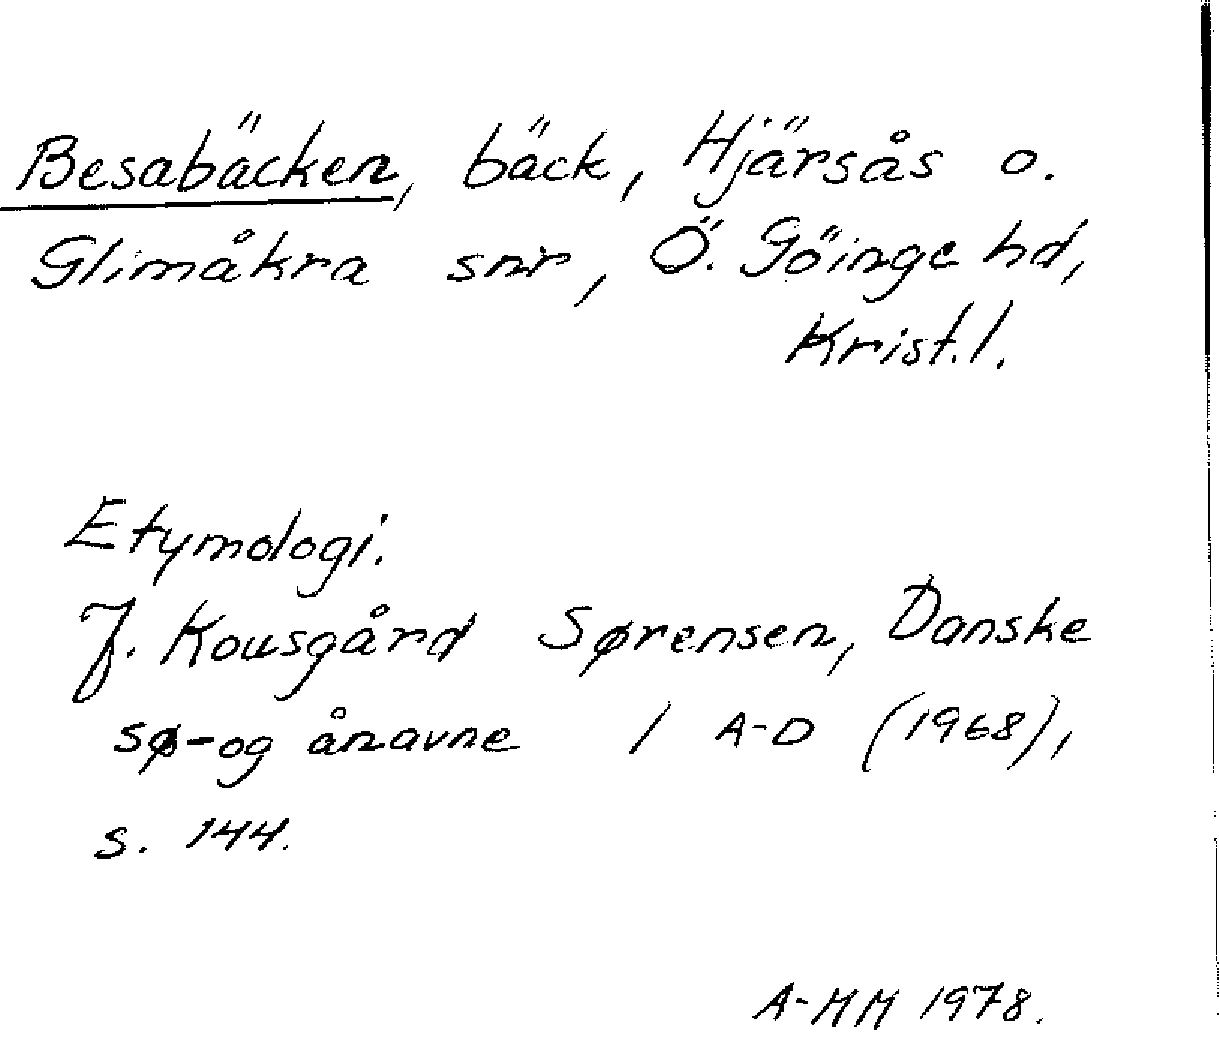 Besabäcken, bäck, Hjärsås o.
Glimåkra snr, Ö. Göinge hd,
Krist. l.
Etymologi.
J. Kousgård Sørensen, Danske
sø- og ånavne 1 A-D (1968),
s. 144.
A-MM 1978.